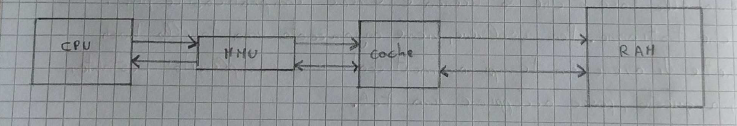 CPU
MMU
Cache
RAM